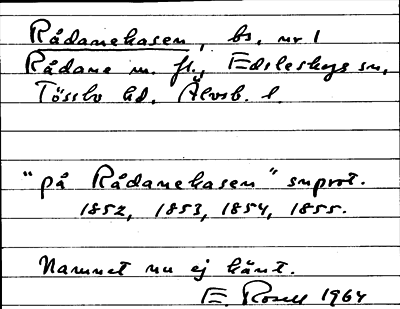 Rådanehasen, bs. nr 1
Rådane m. fl., Edsleskogs sn,
Tössbo hd. Älvsb. l.
"på Rådanehasen" snprot.
1852, 1853, 1854, 1855.
Namnet nu ej känt.
E. Rosell 1964